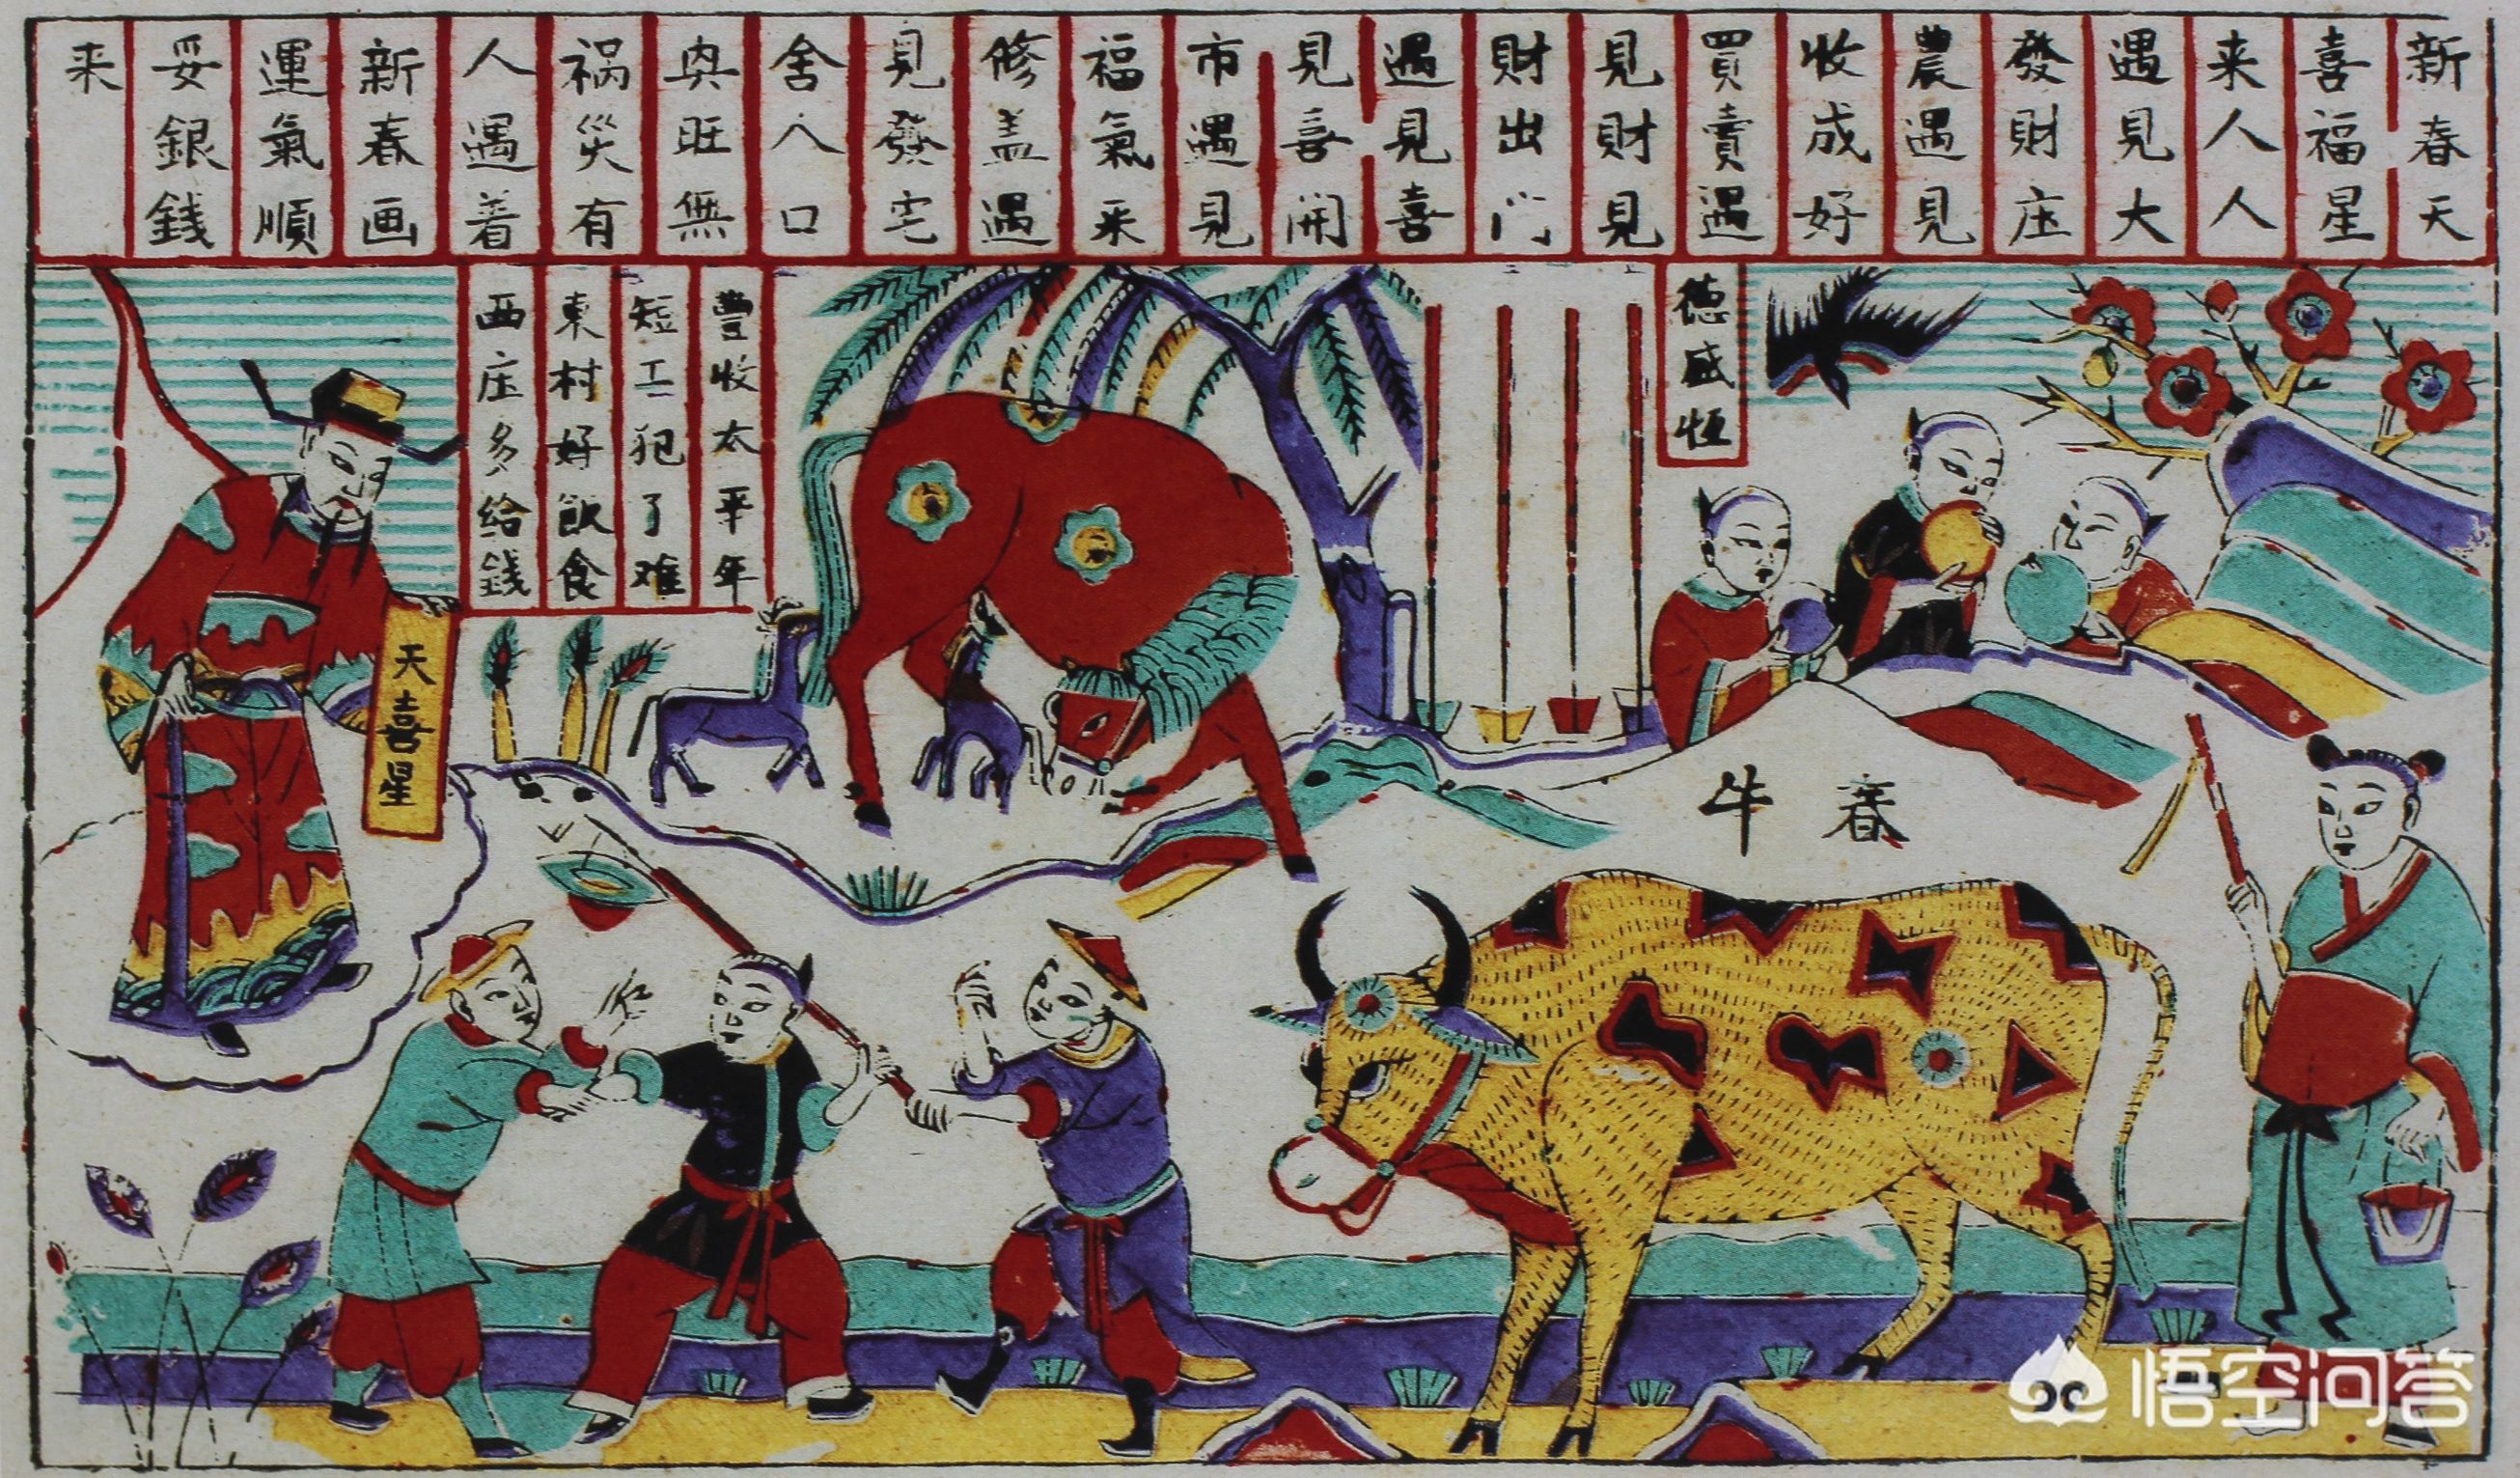 新春天
喜福星
来人人
遇見大
發財庄
農遇見
收成好
買賣遇
見財見
財出门
遇見喜
見喜開
市遇見
福氣来
修盖遇
見發宅
舍人口
興旺無
祸災有
人遇着
新春画
運氣順
妥銀錢
来
德盛恒
豐收太平年
短工犯了难
東村好飲食
西庄多给錢
天喜星
春牛
悟空问答